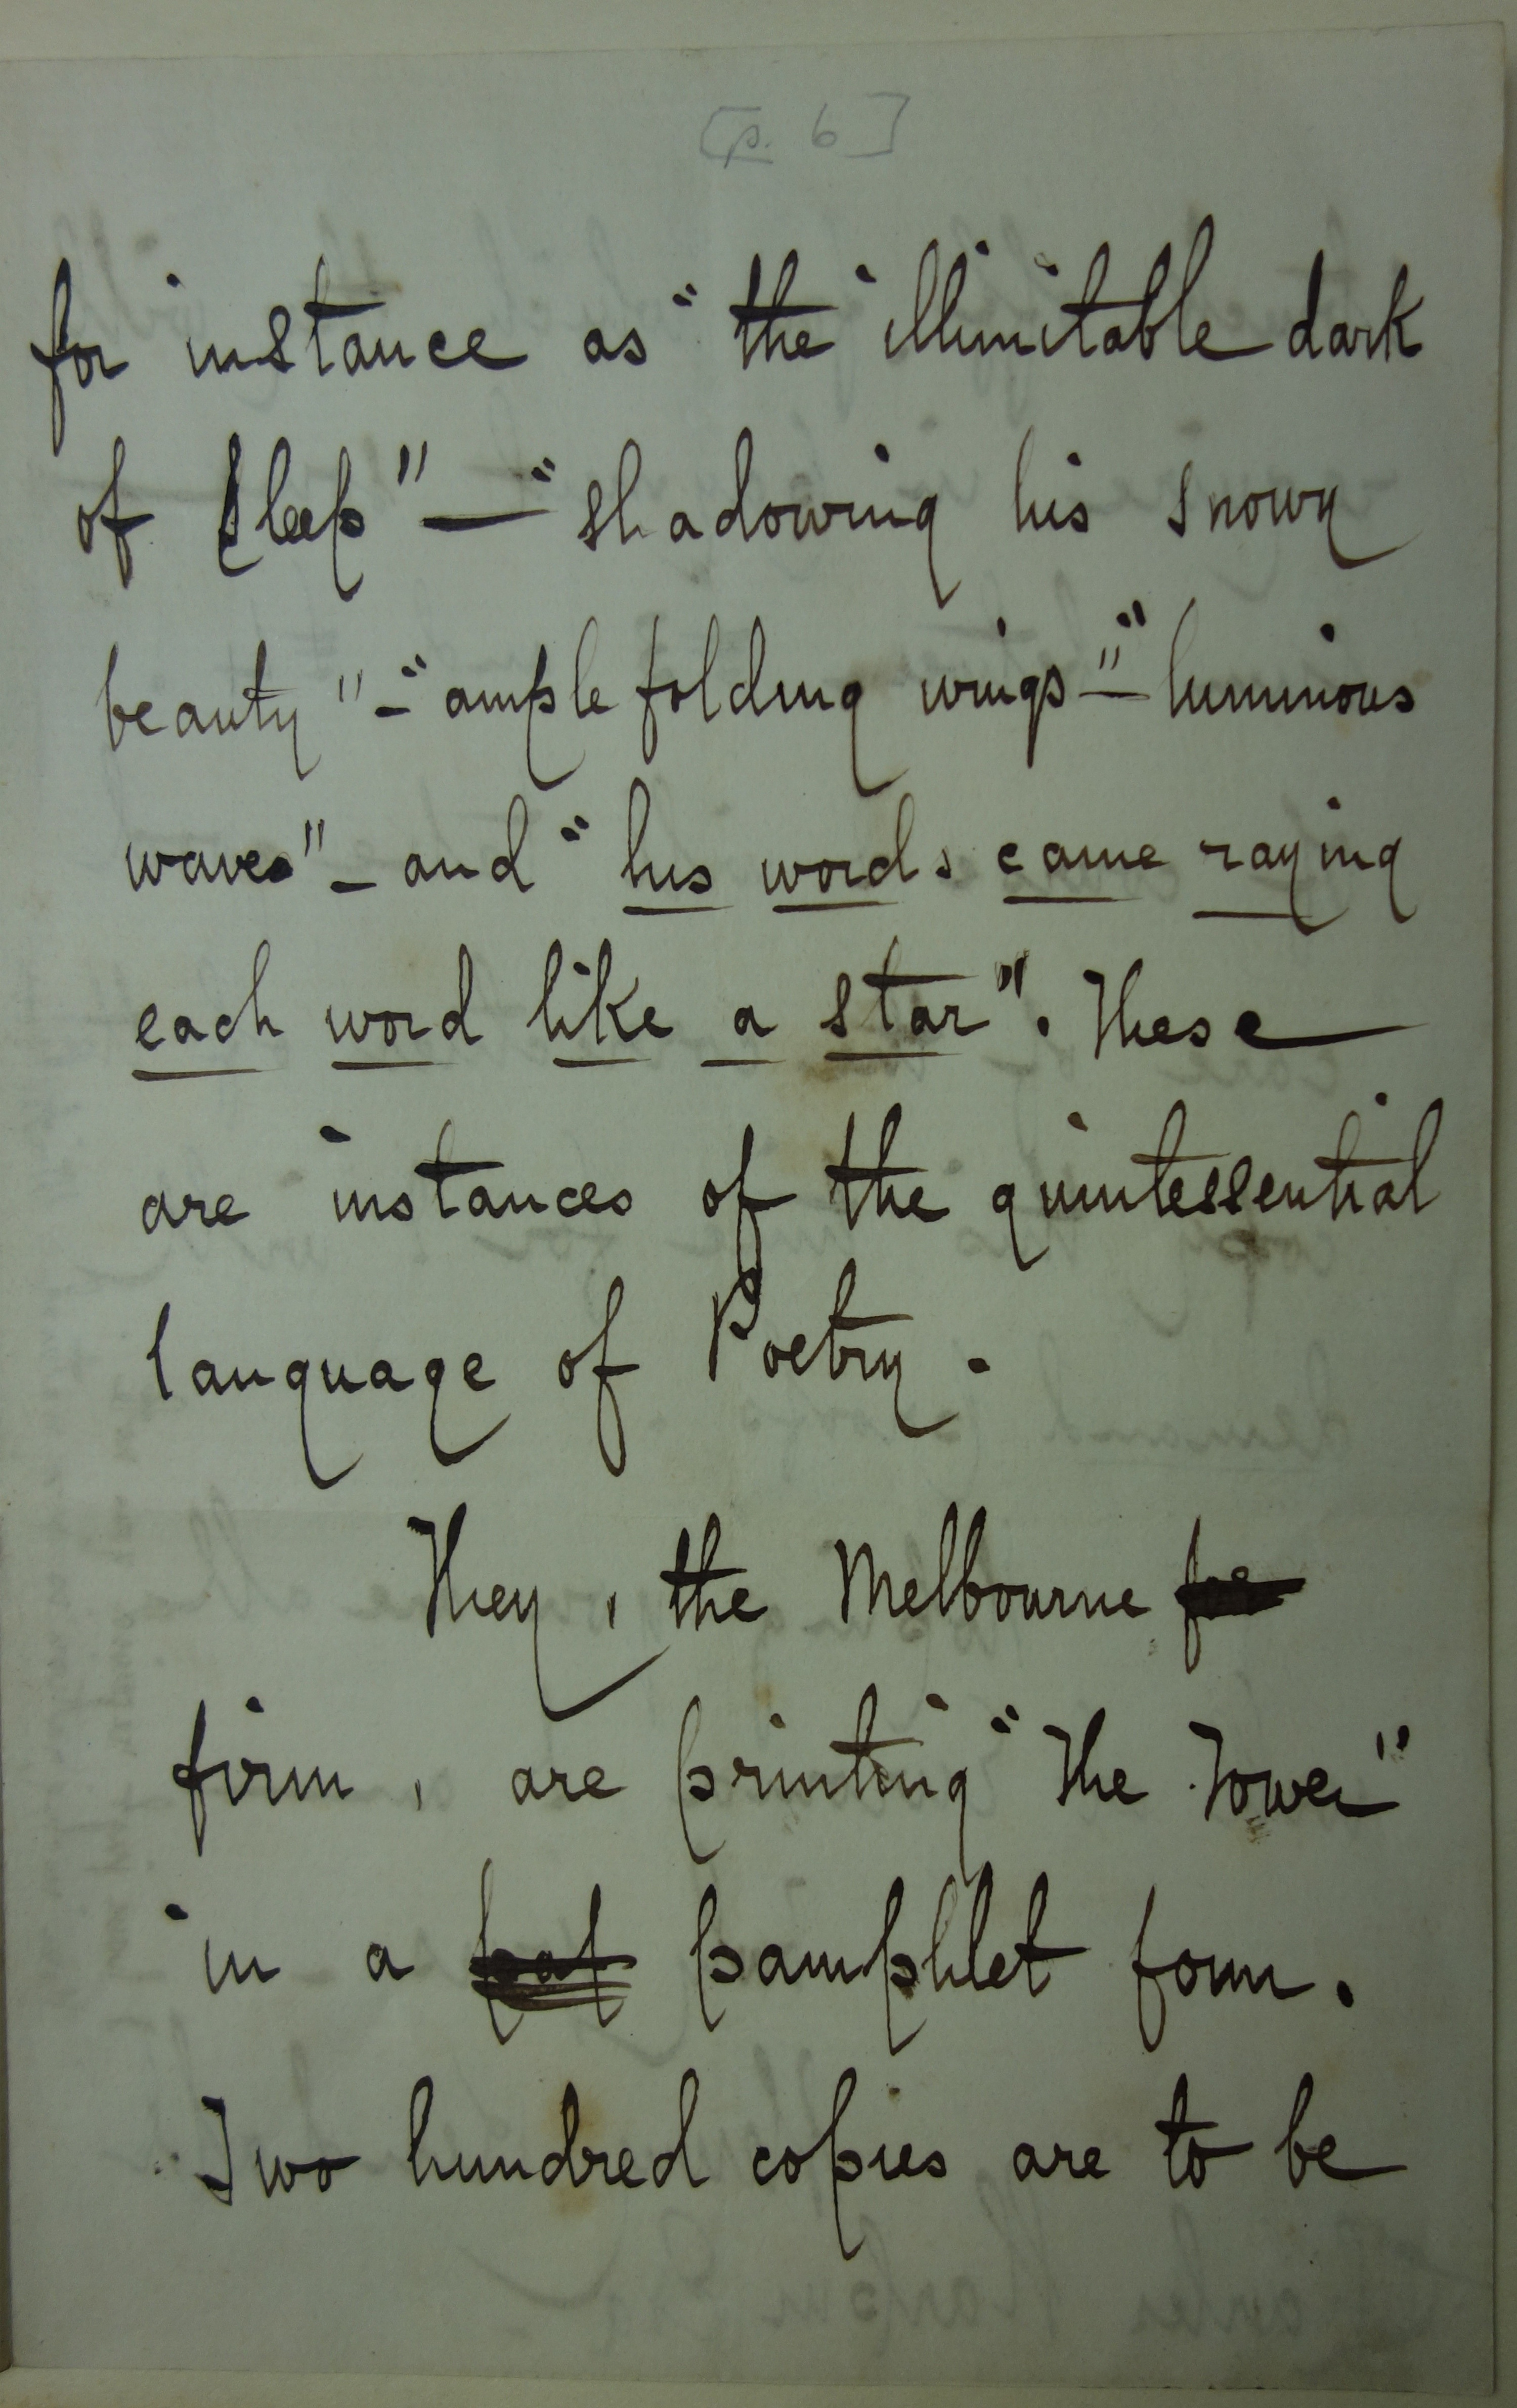 [p. 6]
for instance as "the illimitable dark
of sleep" — "shadowing his snowy
beauty" – "ample folding wings" – "luminous
waves" – and "his words came raying
each word like a star". These
are instances of the quintessential
language of Poetry.
They, the Melbourne
firm, are printing "The Tower"
in a pamphlet form.
Two hundred copies are to be